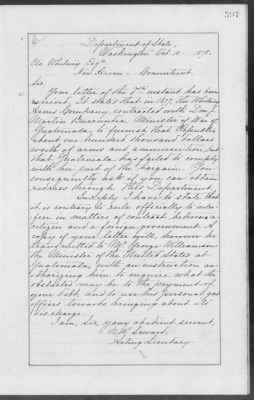 597
Department of State,
Washington Oct 10 1878.
Eli Whitney Esqre
New Haven - Connecticut.
Sir.
Your letter of the 7th instant has been
received. It states that in 1877, the Whitney
Arms Company contracted with Don J.
Martin Barrundia Minister of War of
Guatemala, to furnish that Republic
about one hundred thousand dollars
worth of arms and ammunition, but
that Guatemala has failed to comply
with her part of the bargain. You
consequently ask if you can obtain
redress through this Department.
In reply I have to state that
it is contrary to rule officially to inter-
fere in matters of contract between a
citizen and a foreign government. A
copy of your letter will, however be
transmitted to Mr George Williamson
the Minister of the United States at
Guatemala, with an instruction au-
thorizing him to enquire what the
obstacles may be to the payment of
your debt, and to use his personal good
offices towards bringing about its
discharge.
I am, Sir, your obedient servant,
F. W. Seward,
Acting Secretary.